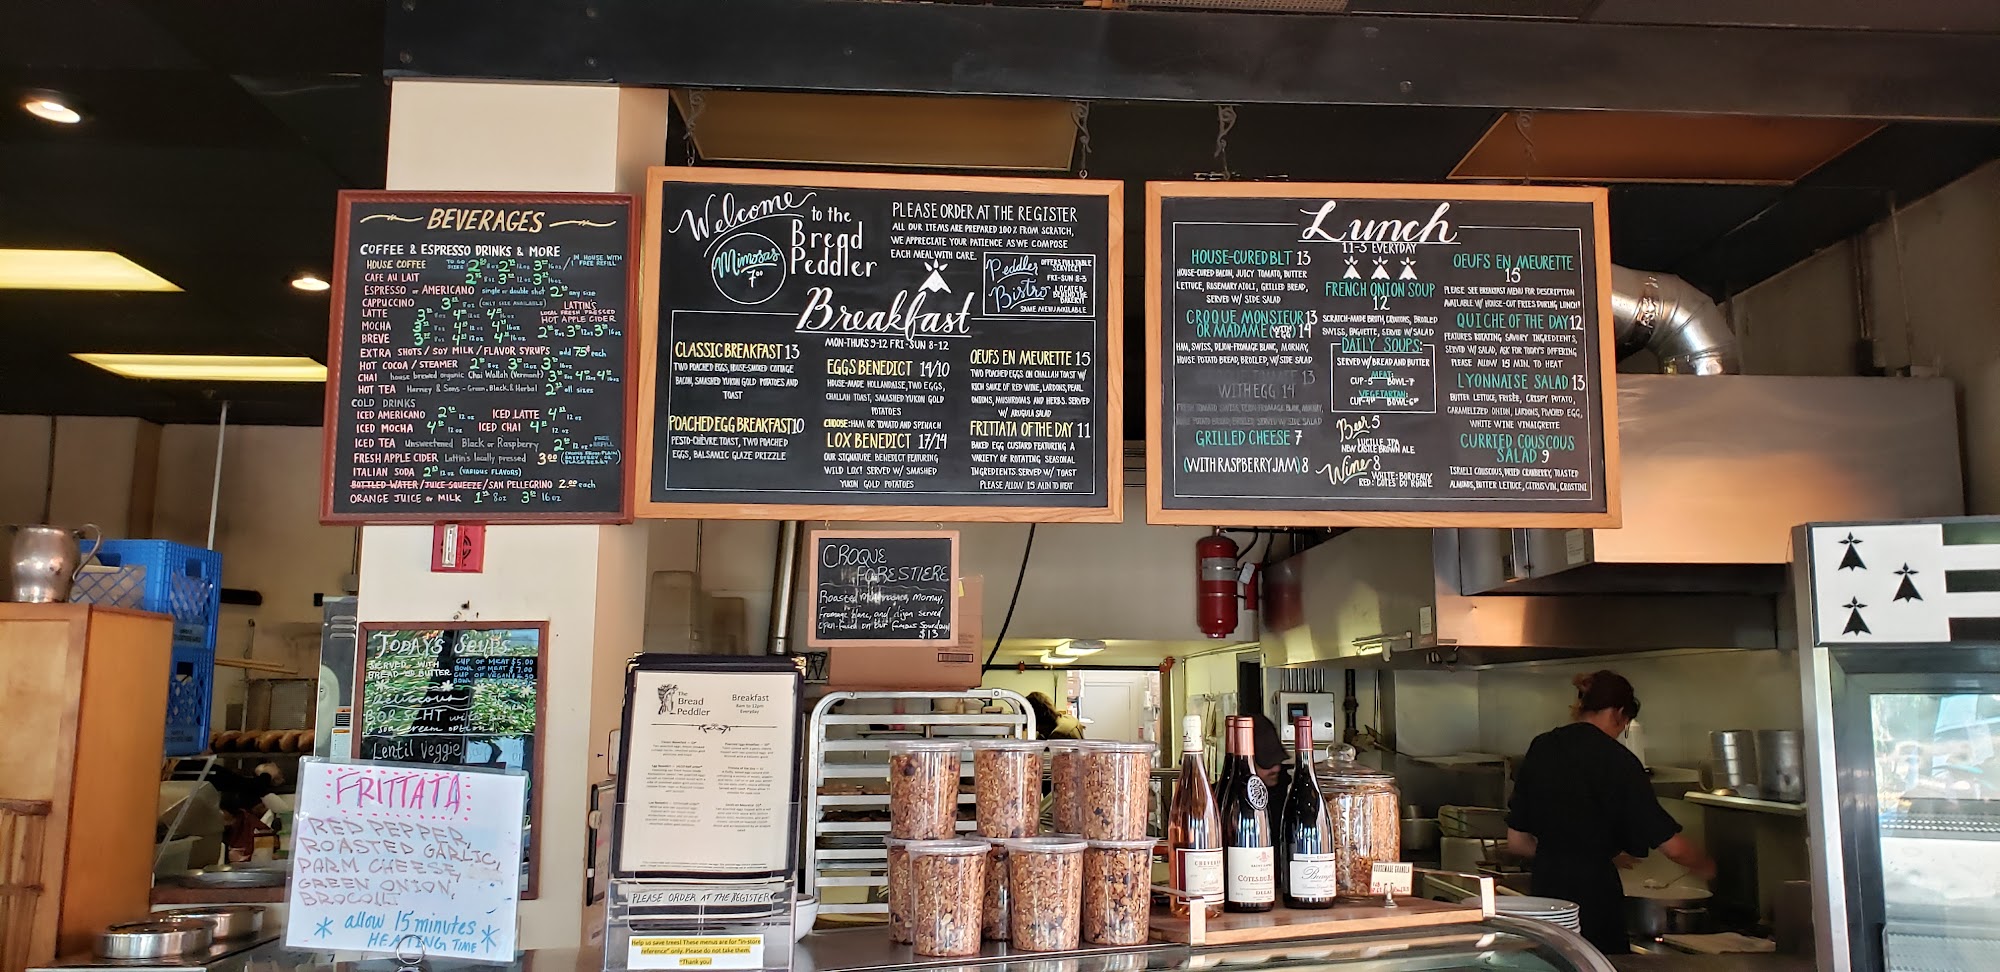 BEVERAGES
COFFEE & ESPRESSO DRINKS & MORE
HOUSE COFFEE TO GO SIZES 8oz 12oz 16oz / IN HOUSE WITH 1 FREE REFILL
CAFE AU LAIT 8oz 12oz 16oz
ESPRESSO or AMERICANO single or double shot any size
CAPPUCCINO 8oz (ONLY SIZE AVAILABLE)
LATTE 8oz 12oz 16oz
MOCHA 8oz 12oz 16oz
BREVE 8oz 12oz 16oz
LATTIN'S
LOCAL FRESH PRESSED
HOT APPLE CIDER
8oz 12oz 16oz
EXTRA SHOTS / SOY MILK / FLAVOR SYRUPS add 75¢ each
HOT COCOA / STEAMER 8oz 12oz 16oz
CHAI house brewed organic Chai Wallah (Vermont) 8oz 12oz 16oz
HOT TEA Harney & Sons - Green, Black & Herbal all sizes
COLD DRINKS
ICED AMERICANO 12oz ICED LATTE 12oz
ICED MOCHA 12oz ICED CHAI 12oz
ICED TEA Unsweetened Black or Raspberry 12oz FREE REFILL
FRESH APPLE CIDER Lattin's locally pressed 3.00
ITALIAN SODA 12oz (VARIOUS FLAVORS)
BOTTLED WATER / JUICE SQUEEZE / SAN PELLEGRINO 2.00 each
ORANGE JUICE or MILK 8oz 16oz
Welcome to the
Bread
Peddler
Mimosas
7.00
PLEASE ORDER AT THE REGISTER
ALL OUR ITEMS ARE PREPARED 100% FROM SCRATCH,
WE APPRECIATE YOUR PATIENCE AS WE COMPOSE
EACH MEAL WITH CARE.
Peddler
Bistro
OFFERS FULL TABLE
SERVICE!
FRI-SUN 8-3
LOCATED
BEHIND THE
BAKERY!
SAME MENU AVAILABLE
Breakfast
MON-THURS 9-12 FRI-SUN 8-12
CLASSIC BREAKFAST 13
TWO POACHED EGGS, HOUSE-SMOKED COTTAGE
BACON, SMASHED YUKON GOLD POTATOES AND
TOAST
POACHED EGG BREAKFAST 10
PESTO-CHÈVRE TOAST, TWO POACHED
EGGS, BALSAMIC GLAZE DRIZZLE
EGGS BENEDICT 14/10
HOUSE-MADE HOLLANDAISE, TWO EGGS,
CHALLAH TOAST, SMASHED YUKON GOLD
POTATOES
CHOOSE: HAM OR TOMATO AND SPINACH
LOX BENEDICT 17/14
OUR SIGNATURE BENEDICT FEATURING
WILD LOX! SERVED W/ SMASHED
YUKON GOLD POTATOES
OEUFS EN MEURETTE 15
TWO POACHED EGGS ON CHALLAH TOAST W/
RICH SAUCE OF RED WINE, LARDONS, PEARL
ONIONS, MUSHROOMS AND HERBS. SERVED
W/ ARUGULA SALAD
FRITTATA OF THE DAY 11
BAKED EGG CUSTARD FEATURING A
VARIETY OF ROTATING SEASONAL
INGREDIENTS. SERVED W/ TOAST
PLEASE ALLOW 15 MIN TO HEAT
Lunch
11-3 EVERYDAY
HOUSE-CURED BLT 13
HOUSE-CURED BACON, JUICY TOMATO, BUTTER
LETTUCE, ROSEMARY AIOLI, GRILLED BREAD,
SERVED W/ SIDE SALAD
CROQUE MONSIEUR 13
OR MADAME (WITH EGG) 14
HAM, SWISS, DIJON-FROMAGE BLANC, MORNAY,
HOUSE POTATO BREAD, BROILED, W/ SIDE SALAD
WITH EGG 14
GRILLED CHEESE 7
(WITH RASPBERRY JAM) 8
FRENCH ONION SOUP
12
SCRATCH-MADE BROTH, CROUTONS, BROILED
SWISS, BAGUETTE, SERVED W/ SALAD
DAILY SOUPS:
SERVED W/ BREAD AND BUTTER
MEAT:
CUP-5 BOWL-7
VEGETARIAN:
CUP-4⁵⁰ BOWL-6⁵⁰
Beer 5
LUCILLE IPA
NEW CASTLE BROWN ALE
Wine 8
WHITE: BORDEAUX
RED: COTES DU RHONE
OEUFS EN MEURETTE
15
PLEASE SEE BREAKFAST MENU FOR DESCRIPTION
AVAILABLE W/ HOUSE-CUT FRIES DURING LUNCH!
QUICHE OF THE DAY 12
FEATURES ROTATING SAVORY INGREDIENTS,
SERVED W/ SALAD, ASK FOR TODAY'S OFFERING
PLEASE ALLOW 15 MIN. TO HEAT
LYONNAISE SALAD 13
BUTTER LETTUCE, FRISÉE, CRISPY POTATO,
CARAMELIZED ONION, LARDONS, POACHED EGG,
WHITE WINE VINAIGRETTE
CURRIED COUSCOUS
SALAD 9
ISRAELI COUSCOUS, DRIED CRANBERRY, TOASTED
ALMONDS, BUTTER LETTUCE, CITRUS VIN, CROSTINI
CROQUE
FORESTIERE
Roasted Mushrooms, Mornay,
Fromage blanc, and dijon served
open-faced on our famous Sourdough
$13
TODAYS SOUPS
SERVED WITH
BREAD AND BUTTER
CUP OF MEAT $5.00
BOWL OF MEAT $7.00
CUP OF VEGAN
BOWL OF
Delicious
BORSCHT with
sour cream option
Lentil Veggie
FRITTATA
RED PEPPER,
ROASTED GARLIC,
PARM CHEESE,
GREEN ONION,
BROCOLLI
* allow 15 minutes *
HEATING TIME
The
Bread
Peddler
Breakfast
8am to 12pm
Everyday
PLEASE ORDER AT THE REGISTER
Help us save trees! These menus are for "in-store
reference" only. Please do not take them.
"Thank you!
HOUSEMADE GRANOLA